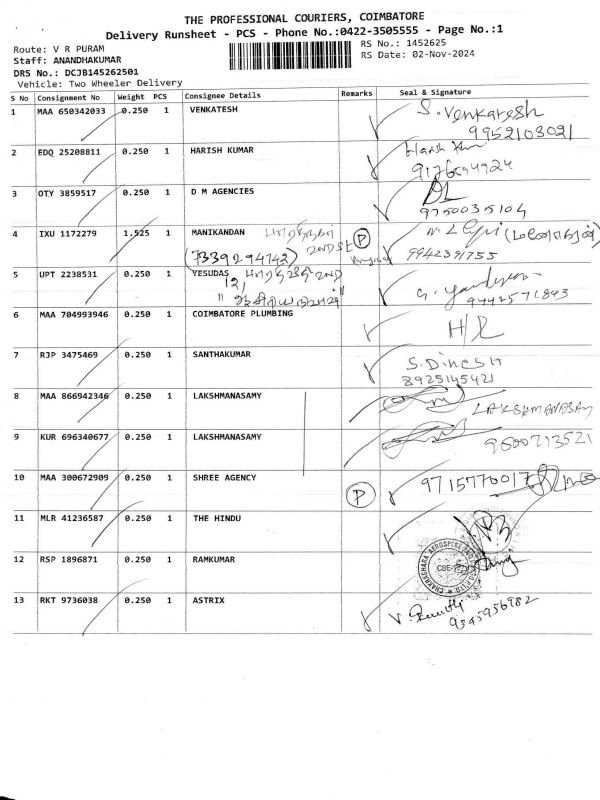 THE PROFESSIONAL COURIERS, COIMBATORE
Delivery Runsheet - PCS - Phone No.:0422-3505555 - Page No.:1
Route: V R PURAM
RS No.: 1452625
Staff: ANANDHAKUMAR
RS Date: 02-Nov-2024
DRS No.: DCJB145262501
Vehicle: Two Wheeler Delivery
S No Consignment No Weight PCS Consignee Details Remarks Seal & Signature
1 MAA 650342033 0.250 1 VENKATESH S. Venkatesh
9952103021
2 EDQ 25208811 0.250 1 HARISH KUMAR Harish
3 OTY 3859517 0.250 1 D M AGENCIES
9750035104
4 IXU 1172279 1.525 1 MANIKANDAN P
(7339294742) 9942391755
5 UPT 2238531 0.250 1 YESUDAS
9442571843
6 MAA 704993946 0.250 1 COIMBATORE PLUMBING
7 RJP 3475469 0.250 1 SANTHAKUMAR S. DINESH
8925145421
8 MAA 866942346 0.250 1 LAKSHMANASAMY LAKSHMANASAMY
9 KUR 696340677 0.250 1 LAKSHMANASAMY 9500713521
10 MAA 300672909 0.250 1 SHREE AGENCY P 9715770017
11 MLR 41236587 0.250 1 THE HINDU
12 RSP 1896871 0.250 1 RAMKUMAR
13 RKT 9736038 0.250 1 ASTRIX
9345956982